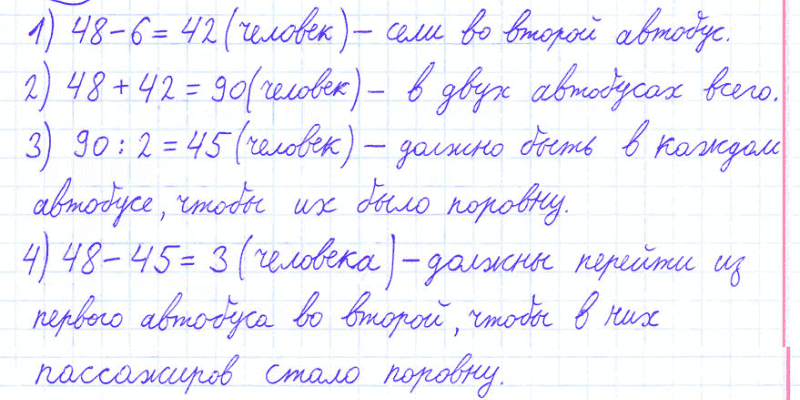 1) 48 – 6 = 42 (человек) – сели во второй автобус.
2) 48 + 42 = 90 (человек) – в двух автобусах всего.
3) 90 : 2 = 45 (человек) – должно быть в каждом
автобусе, чтобы их было поровну.
4) 48 – 45 = 3 (человека) – должны перейти из
первого автобуса во второй, чтобы в них
пассажиров стало поровну.